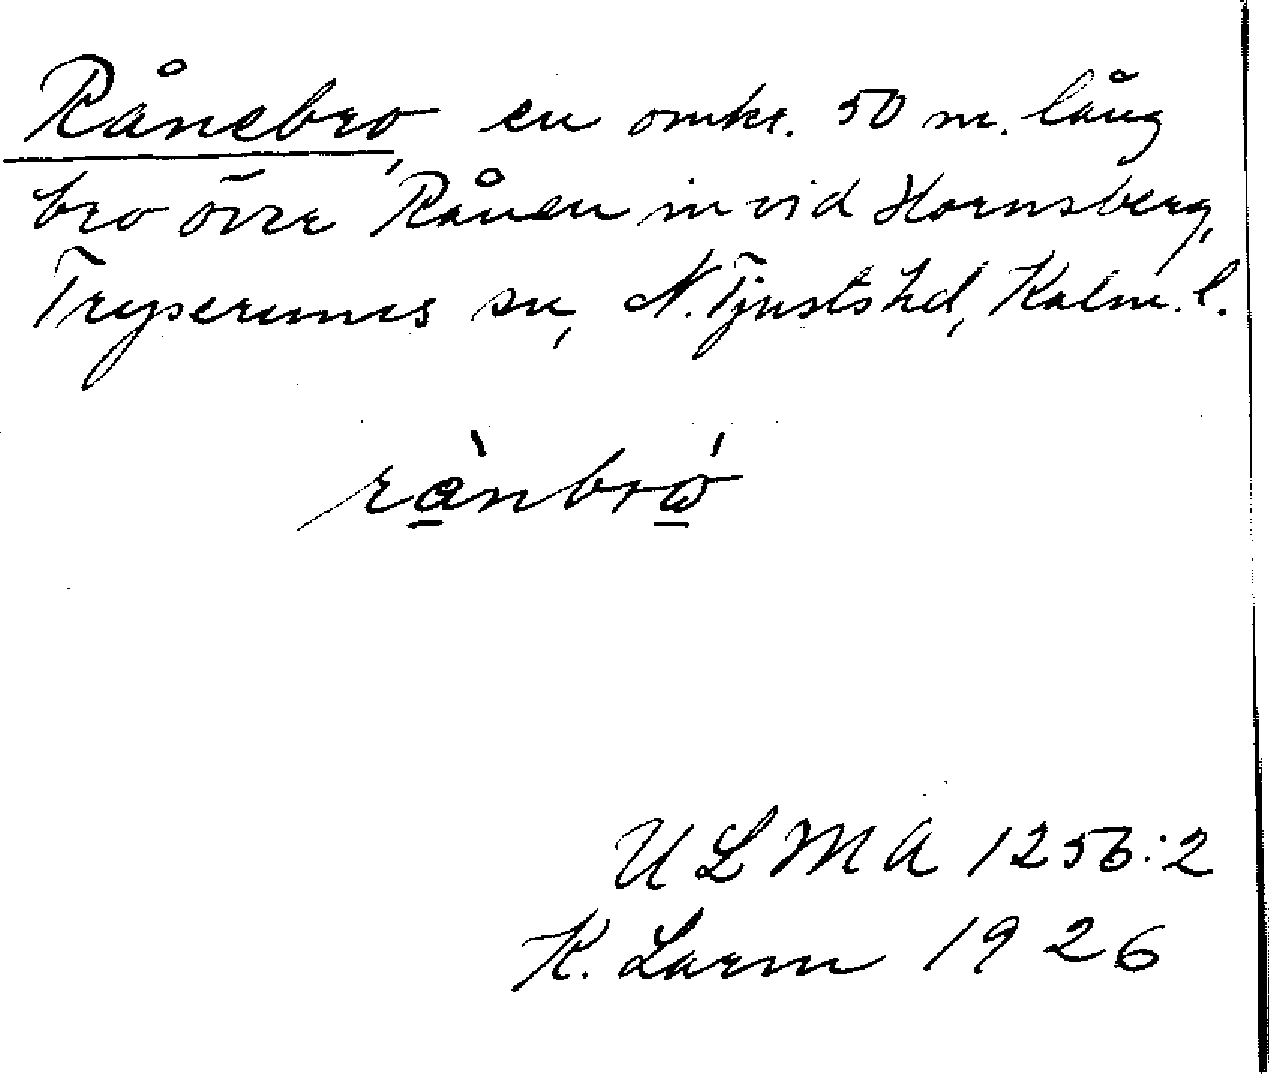 Rånebro, en omkr. 50 m. lång
bro över Rånen in vid Hornsberg,
Tryserums sn, N. Tjusts hd, Kalm. l.
rànbró
ULMA 1256:2
K. Larm 1926